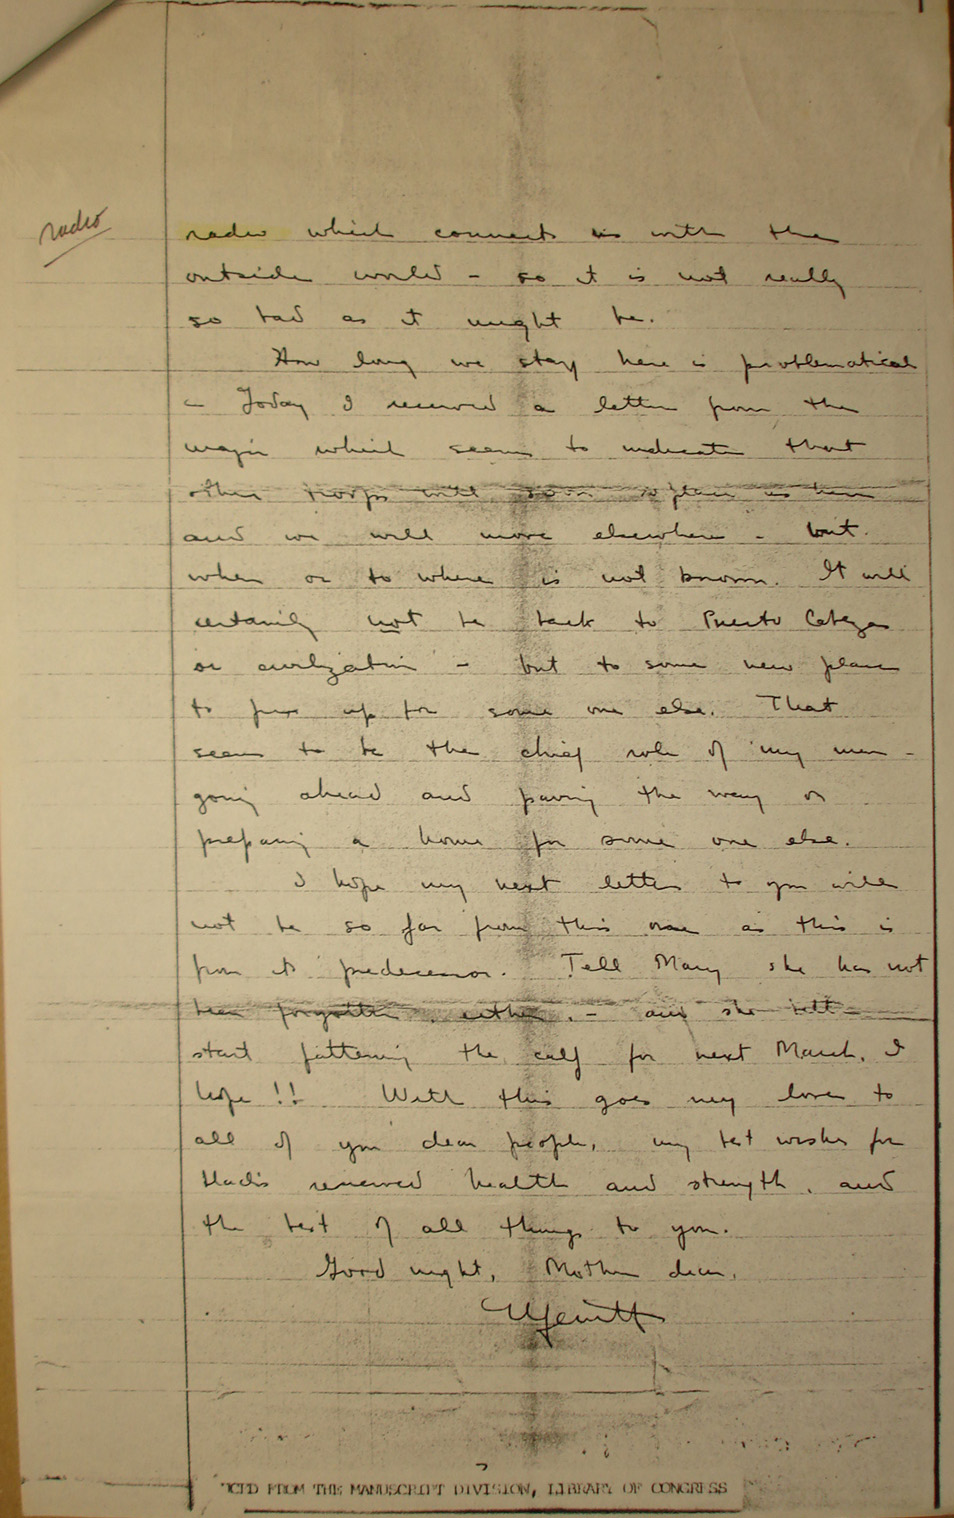 radio
radio which connects us with the
outside world - so it is not really
so bad as it might be.
How long we stay here is problematical
- Today I received a letter from the
major which seems to indicate that
other troops will soon replace us here
and we will move elsewhere - but
when or to where is not known. It will
certainly not be back to Puerto Cabezas
or civilization - but to some new place
to fix up for some one else. That
seems to be the chief role of my men -
going ahead and paving the way or
preparing a home for some one else.
I hope my next letter to you will
not be so far from this one as this is
from its predecessor. Tell Mary she has not
been forgotten, either, - and she
start fattening the calf for next March, I
hope!! With this goes my love to
all of you dear people, my best wishes for
renewed health and strength, and
the best of all things to you.
Good night, Mother dear,
Merritt
FROM THE MANUSCRIPT DIVISION, LIBRARY OF CONGRESS